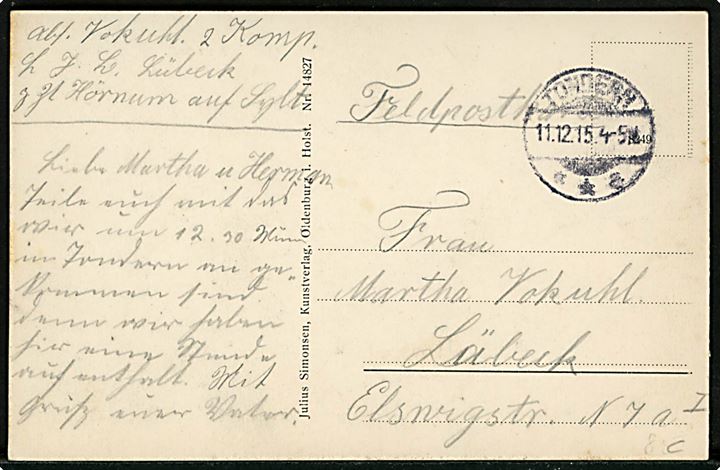 Abs. Vokuhl. 2 Komp.
L. J. B. Lübeck
z Zt Hörnum auf Sylt
Liebe Martha u Herman
Teile euch mit das
wir um 12.30 Minu
in Tondern an ge-
kommen sind
denn wir haben
hir eine Stunde
auf enthalt. Mit
Gruß euer Vater.
Julius Simonsen, Kunstverlag, Oldenburg i. Holst. Nr. 14827
Feldpost
TONDERN
11.12.15. 4-5N.
* * a
Frau
Martha Vokuhl.
Lübeck
Elswigstr. N 7a I